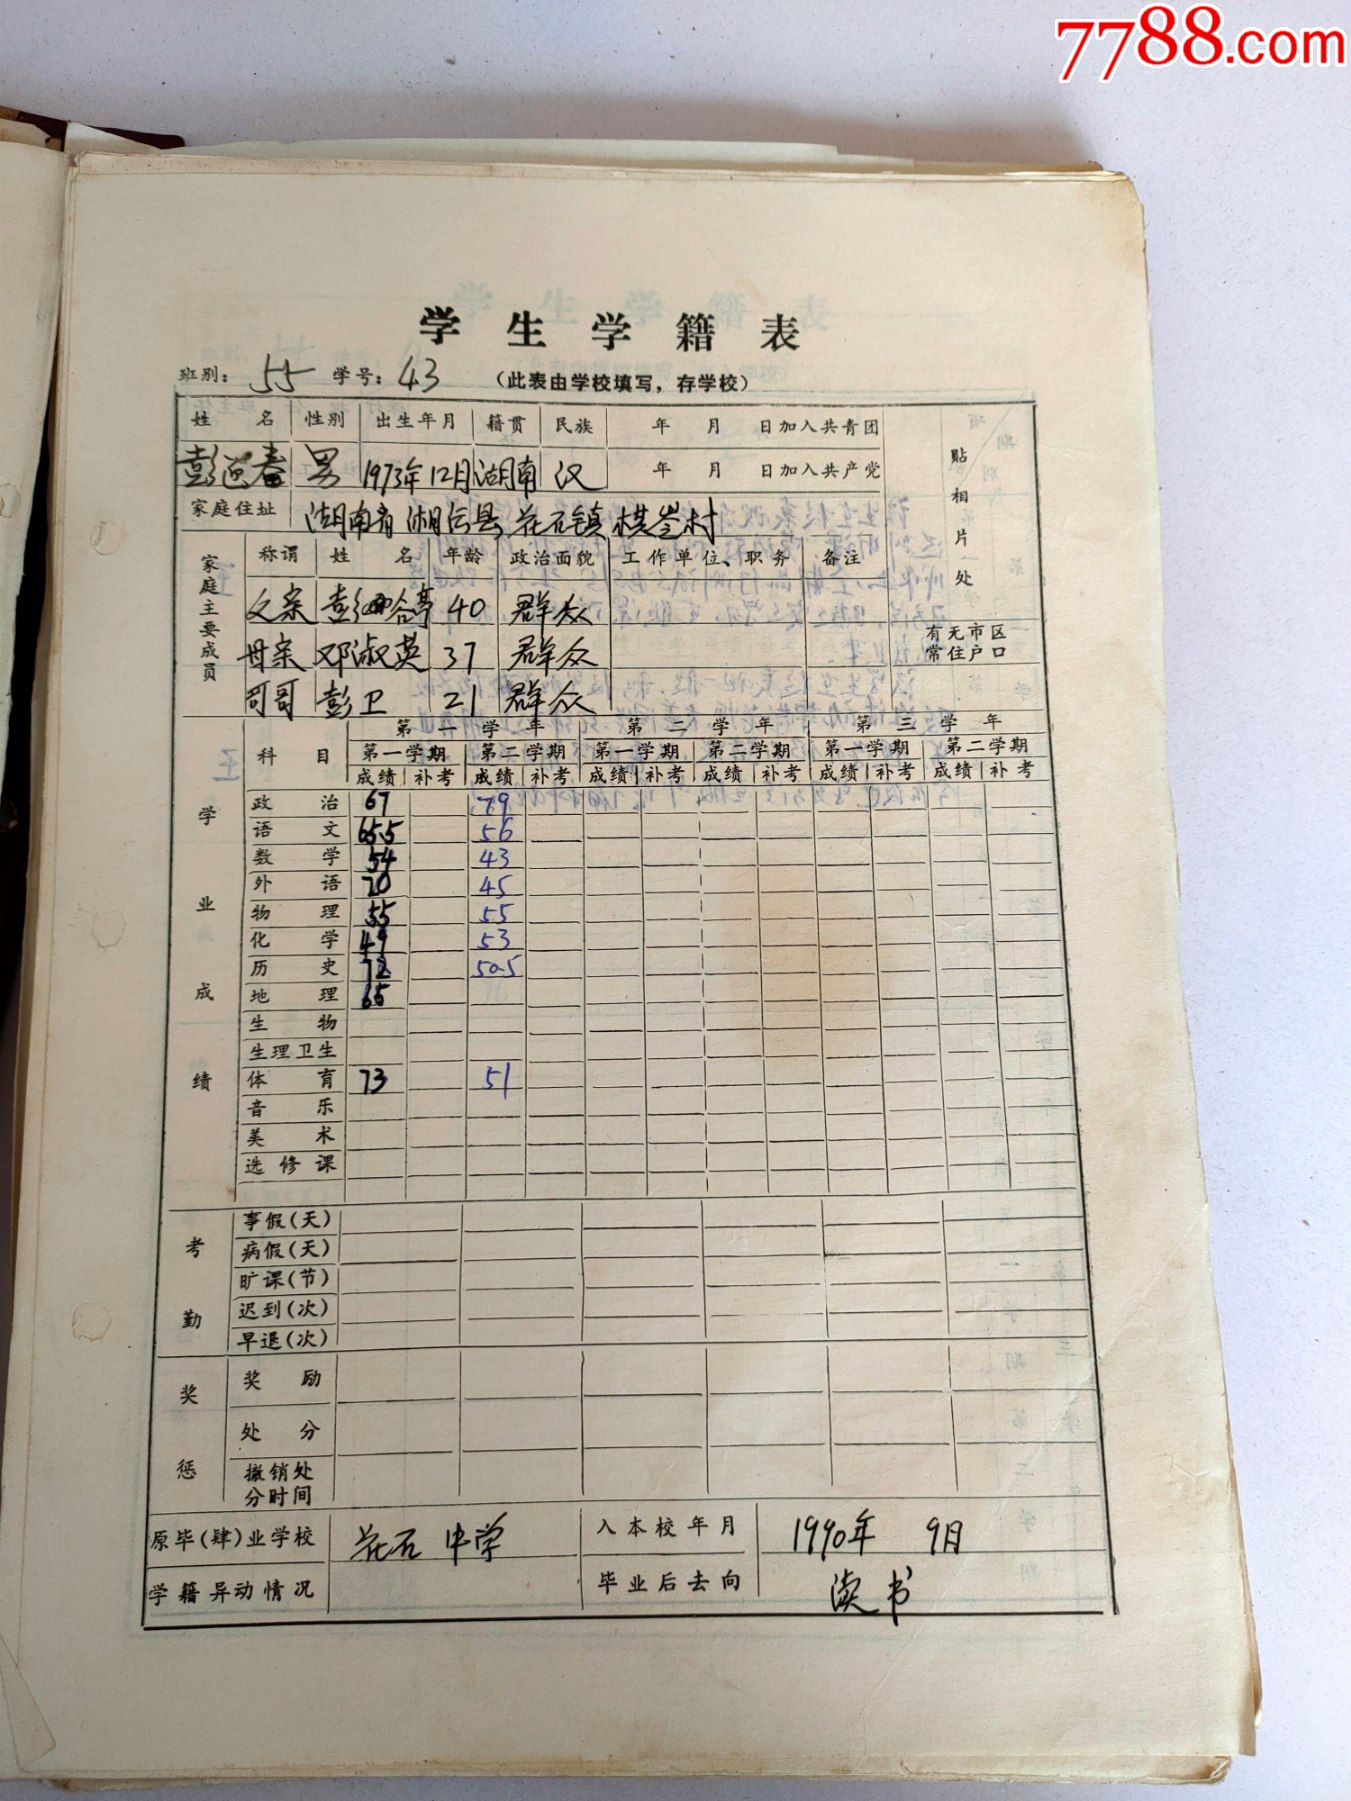 7788.com
学生学籍表
班别: 55 学号: 43 (此表由学校填写，存学校)
姓名 性别 出生年月 籍贯 民族 年 月 日加入共青团
彭迎春 男 1973年12月 湖南 汉 年 月 日加入共产党
贴相片处
家庭住址 湖南省湘潭县花石镇棋岑村
家庭主要成员 称谓 姓名 年龄 政治面貌 工作单位、职务 备注
父亲 40 群众
母亲 邓淑英 37 群众
有无市区常住户口
哥哥 彭卫 21 群众
科目 第一学年 第二学年 第三学年
第一学期 第二学期 第一学期 第二学期 第一学期 第二学期
成绩 补考 成绩 补考 成绩 补考 成绩 补考 成绩 补考 成绩 补考
学业成绩
政治 67 79
语文 65.5 56
数学 54 43
外语 70 45
物理 55 55
化学 49 53
历史 72 50.5
地理 65
生物
生理卫生
体育 73 51
音乐
美术
选修课
考勤
事假(天)
病假(天)
旷课(节)
迟到(次)
早退(次)
奖惩
奖励
处分
撤销处分时间
原毕(肄)业学校 花石中学 入本校年月 1990年 9月
学籍异动情况 毕业后去向 读书